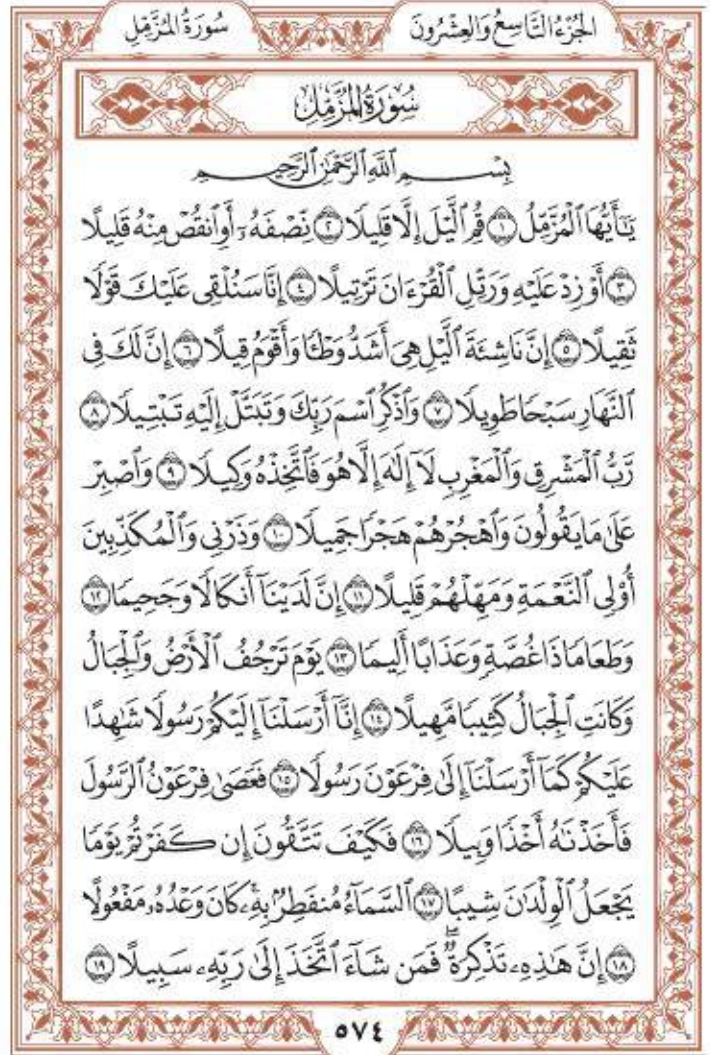 الجُزْءُ التَّاسِعُ وَالعِشْرُونَ
سُورَةُ المُزَّمِّلِ
سُورَةُ المُزَّمِّلِ
بِسْمِ ٱللَّهِ ٱلرَّحْمَٰنِ ٱلرَّحِيمِ
يَٰٓأَيُّهَا ٱلْمُزَّمِّلُ ١ قُمِ ٱلَّيْلَ إِلَّا قَلِيلًا ٢ نِّصْفَهُۥٓ أَوِ ٱنقُصْ مِنْهُ قَلِيلًا
٣ أَوْ زِدْ عَلَيْهِ وَرَتِّلِ ٱلْقُرْءَانَ تَرْتِيلًا ٤ إِنَّا سَنُلْقِى عَلَيْكَ قَوْلًا
ثَقِيلًا ٥ إِنَّ نَاشِئَةَ ٱلَّيْلِ هِىَ أَشَدُّ وَطْـًٔا وَأَقْوَمُ قِيلًا ٦ إِنَّ لَكَ فِى
ٱلنَّهَارِ سَبْحًا طَوِيلًا ٧ وَٱذْكُرِ ٱسْمَ رَبِّكَ وَتَبَتَّلْ إِلَيْهِ تَبْتِيلًا ٨
رَّبُّ ٱلْمَشْرِقِ وَٱلْمَغْرِبِ لَآ إِلَٰهَ إِلَّا هُوَ فَٱتَّخِذْهُ وَكِيلًا ٩ وَٱصْبِرْ
عَلَىٰ مَا يَقُولُونَ وَٱهْجُرْهُمْ هَجْرًا جَمِيلًا ١٠ وَذَرْنِى وَٱلْمُكَذِّبِينَ
أُو۟لِى ٱلنَّعْمَةِ وَمَهِّلْهُمْ قَلِيلًا ١١ إِنَّ لَدَيْنَآ أَنكَالًا وَجَحِيمًا ١٢
وَطَعَامًا ذَا غُصَّةٍ وَعَذَابًا أَلِيمًا ١٣ يَوْمَ تَرْجُفُ ٱلْأَرْضُ وَٱلْجِبَالُ
وَكَانَتِ ٱلْجِبَالُ كَثِيبًا مَّهِيلًا ١٤ إِنَّآ أَرْسَلْنَآ إِلَيْكُمْ رَسُولًا شَٰهِدًا
عَلَيْكُمْ كَمَآ أَرْسَلْنَآ إِلَىٰ فِرْعَوْنَ رَسُولًا ١٥ فَعَصَىٰ فِرْعَوْنُ ٱلرَّسُولَ
فَأَخَذْنَٰهُ أَخْذًا وَبِيلًا ١٦ فَكَيْفَ تَتَّقُونَ إِن كَفَرْتُمْ يَوْمًا
يَجْعَلُ ٱلْوِلْدَٰنَ شِيبًا ١٧ ٱلسَّمَآءُ مُنفَطِرٌۢ بِهِۦ ۚ كَانَ وَعْدُهُۥ مَفْعُولًا
١٨ إِنَّ هَٰذِهِۦ تَذْكِرَةٌ ۖ فَمَن شَآءَ ٱتَّخَذَ إِلَىٰ رَبِّهِۦ سَبِيلًا ١٩
٥٧٤